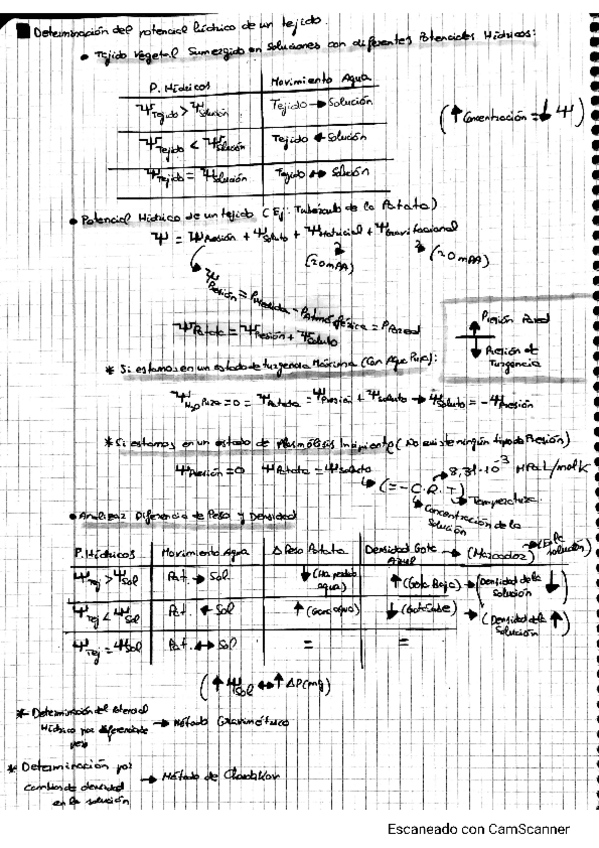 Determinación del potencial hídrico de un tejido.
• Tejido Vegetal Sumergido en soluciones con diferentes Potenciales Hídricos:
P. Hídricos | Movimiento Agua
Ψ Tejido > Ψ Solución | Tejido → Solución
Ψ Tejido < Ψ Solución | Tejido ← Solución
Ψ Tejido = Ψ Solución | Tejido ↔ Solución
(↑ Concentración = ↓ Ψ)
• Potencial Hídrico de un tejido (Ej: Tubérculo de la Patata)
Ψ = Ψ Presión + Ψ Soluto + Ψ Matricial + Ψ Gravitacional
(≃0 mPA) (≃0 mPA)
Ψ Presión = P Medida - P Atmosférica = P Pared
Ψ Patata = Ψ Presión + Ψ Soluto
Presión Pared
Presión de Turgencia
* Si estamos en un estado de turgencia Máxima (Con Agua Pura):
Ψ H2O Pura = 0 = Ψ Patata = Ψ Presión + Ψ Soluto → Ψ Soluto = - Ψ Presión
* Si estamos en un estado de Plasmólisis Incipiente (No existe ningún tipo de Presión)
Ψ Presión = 0 Ψ Patata = Ψ Soluto
(= - C · R · T)
8,31·10⁻³ MPa·L/mol K
Temperatura
Concentración de la Solución
• Analizar Diferencia de Peso y Densidad
P. Hídricos | Movimiento Agua | Δ Peso Patata | Densidad Gota Azul → (Marcador) → (De la solución)
Ψ Tej > Ψ Sol | Pat. → Sol. | ↓ (Ha perdido agua) | ↑ (Gota Baja) → (Densidad de la Solución ↓)
Ψ Tej < Ψ Sol | Pat. ← Sol | ↑ (Gana agua) | ↓ (Gota Sube) → (Densidad de la Solución ↑)
Ψ Tej = Ψ Sol | Pat. ↔ Sol | = | =
(↑ Ψ Sol ↔ ↑ ΔP (mg))
* Determinación del Potencial Hídrico por diferencia de peso → Método Gravimétrico
* Determinación por cambios de densidad en la solución → Método de Chardakov
Escaneado con CamScanner